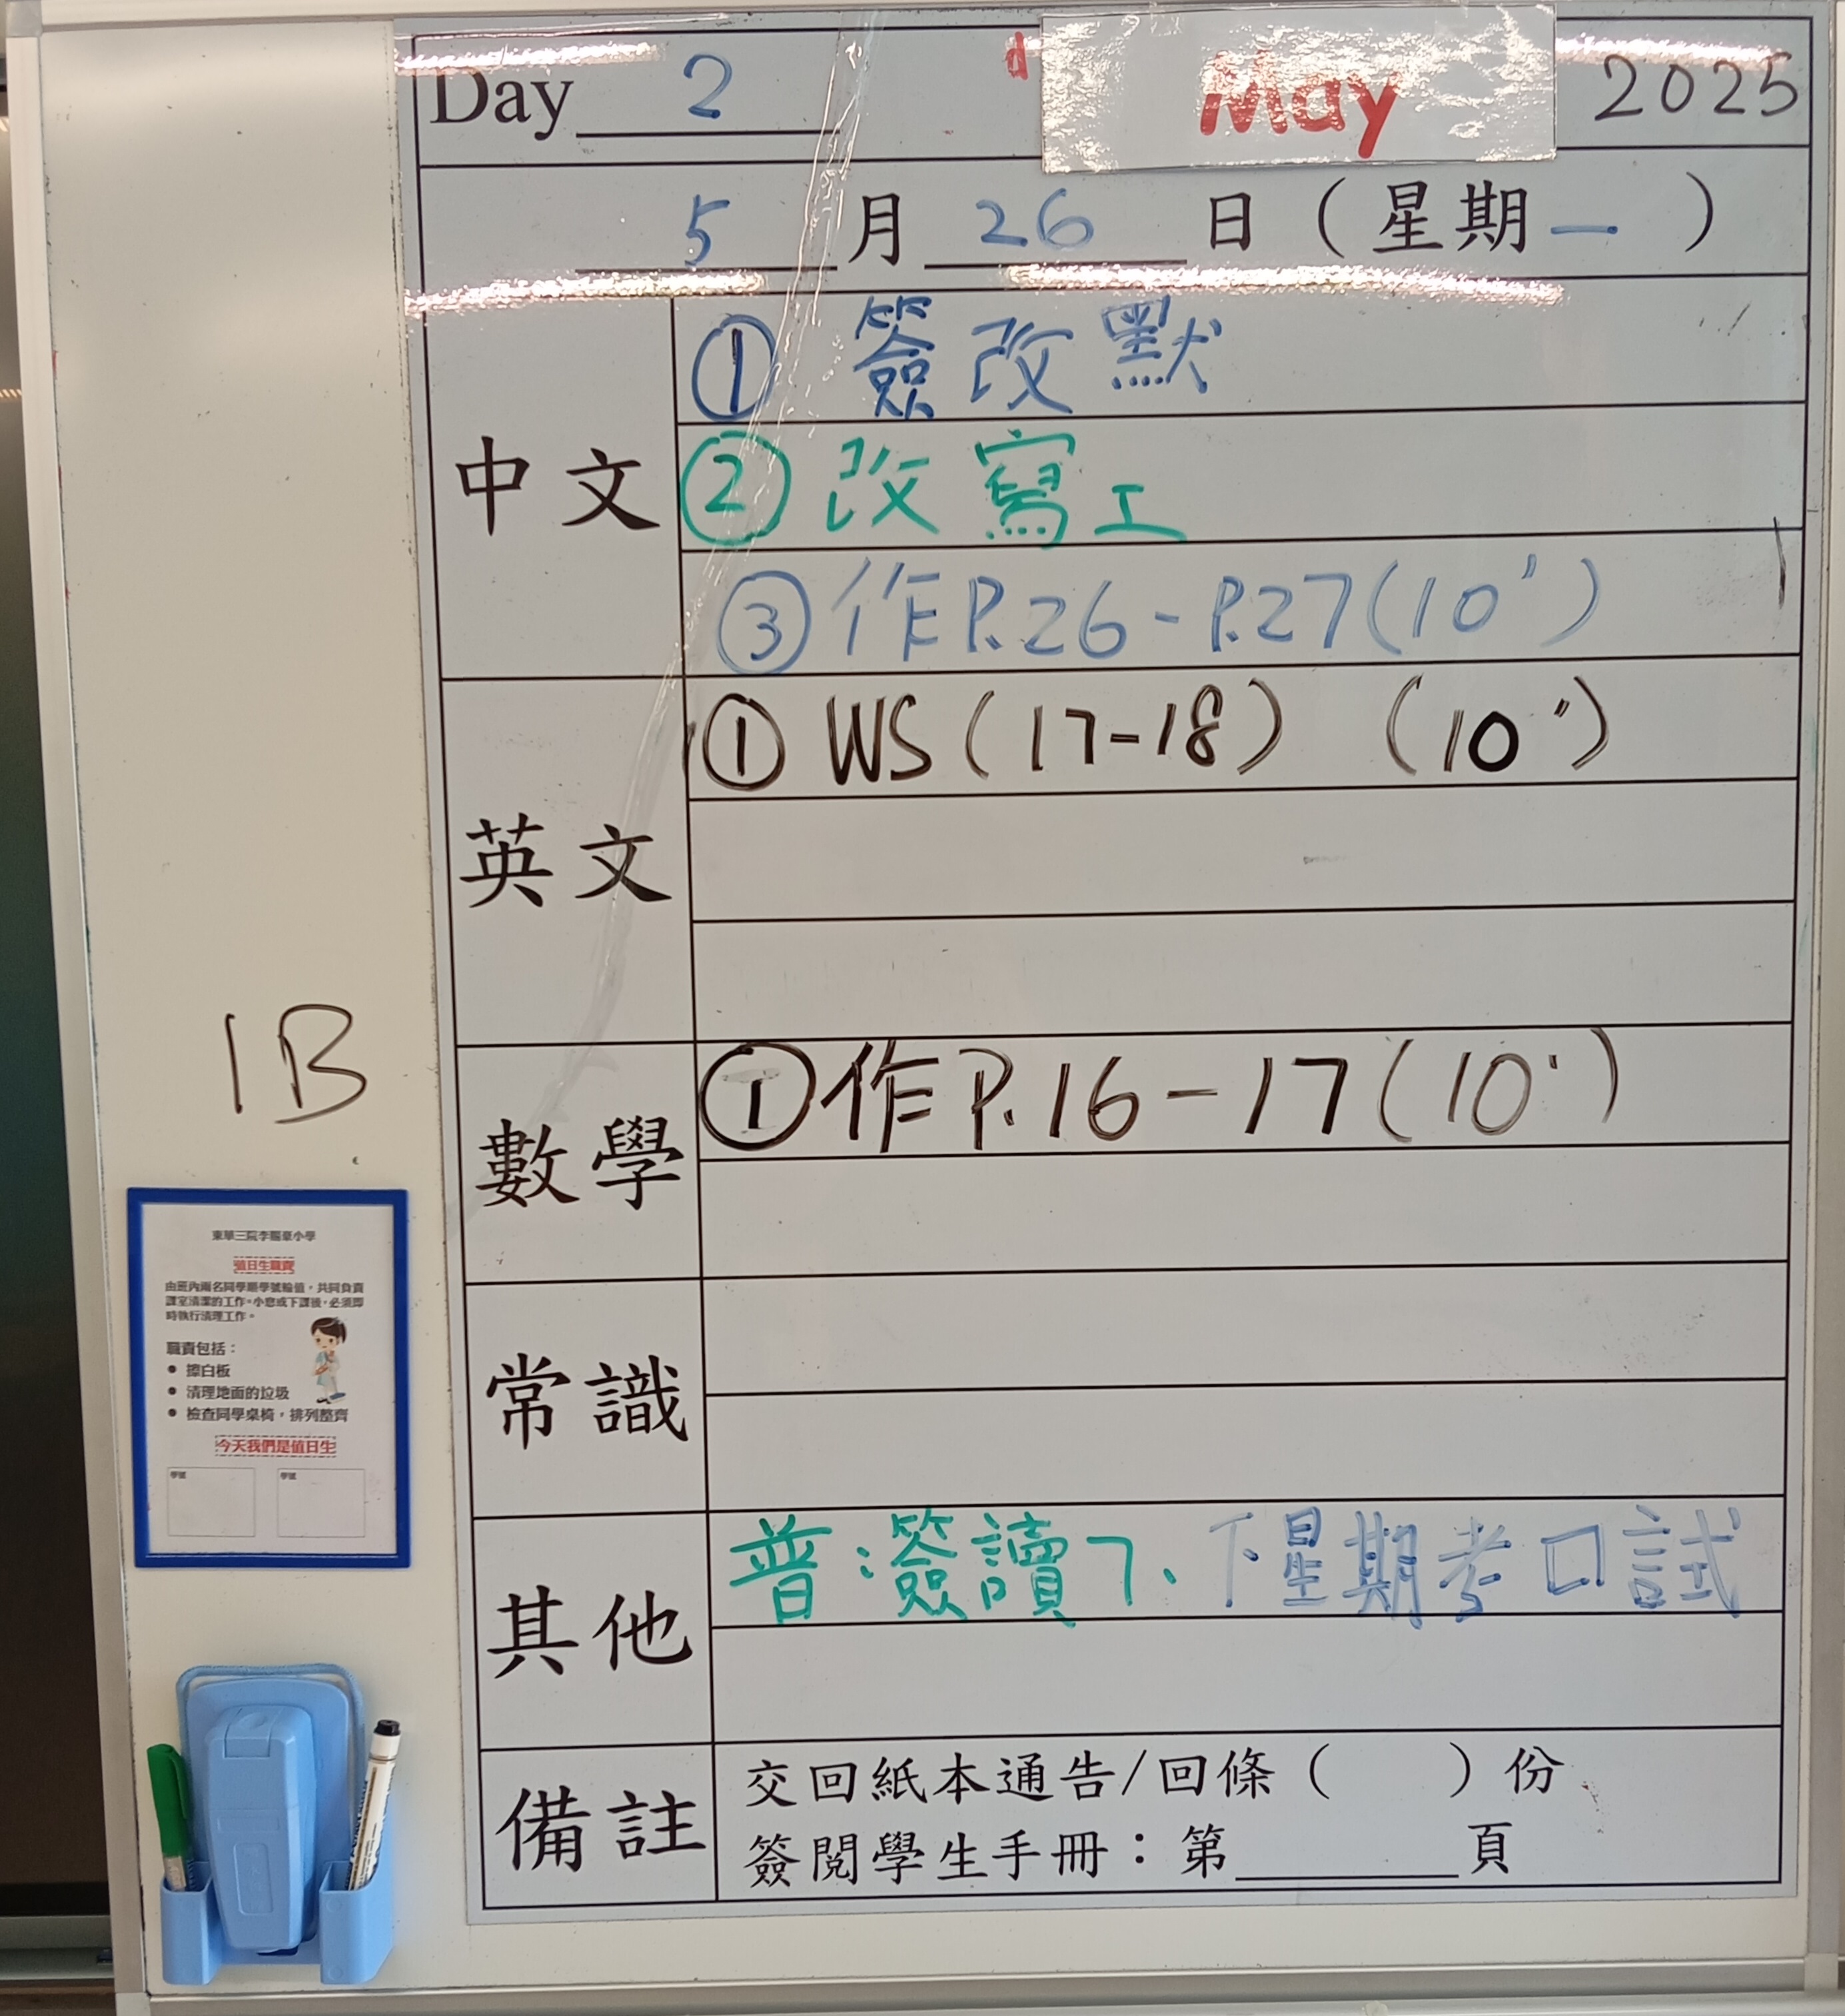 Day 2 May 2025
5月26日(星期一)
中文
① 簽改默
② 改寫工
③ 作P.26-P.27(10')
英文
① WS(17-18) (10')
數學
① 作P.16-17(10')
常識
其他
普:簽讀7、下星期考口試
備註
交回紙本通告/回條( )份
簽閱學生手冊:第______頁
1B
東華三院李賜豪小學
值日生職責
由班內兩名同學順學號輪值,共同負責
課室清潔的工作。小息或下課後,必須即
時執行清理工作。
職責包括:
● 擦白板
● 清理地面的垃圾
● 檢查同學桌椅,排列整齊
今天我們是值日生
學號 學號